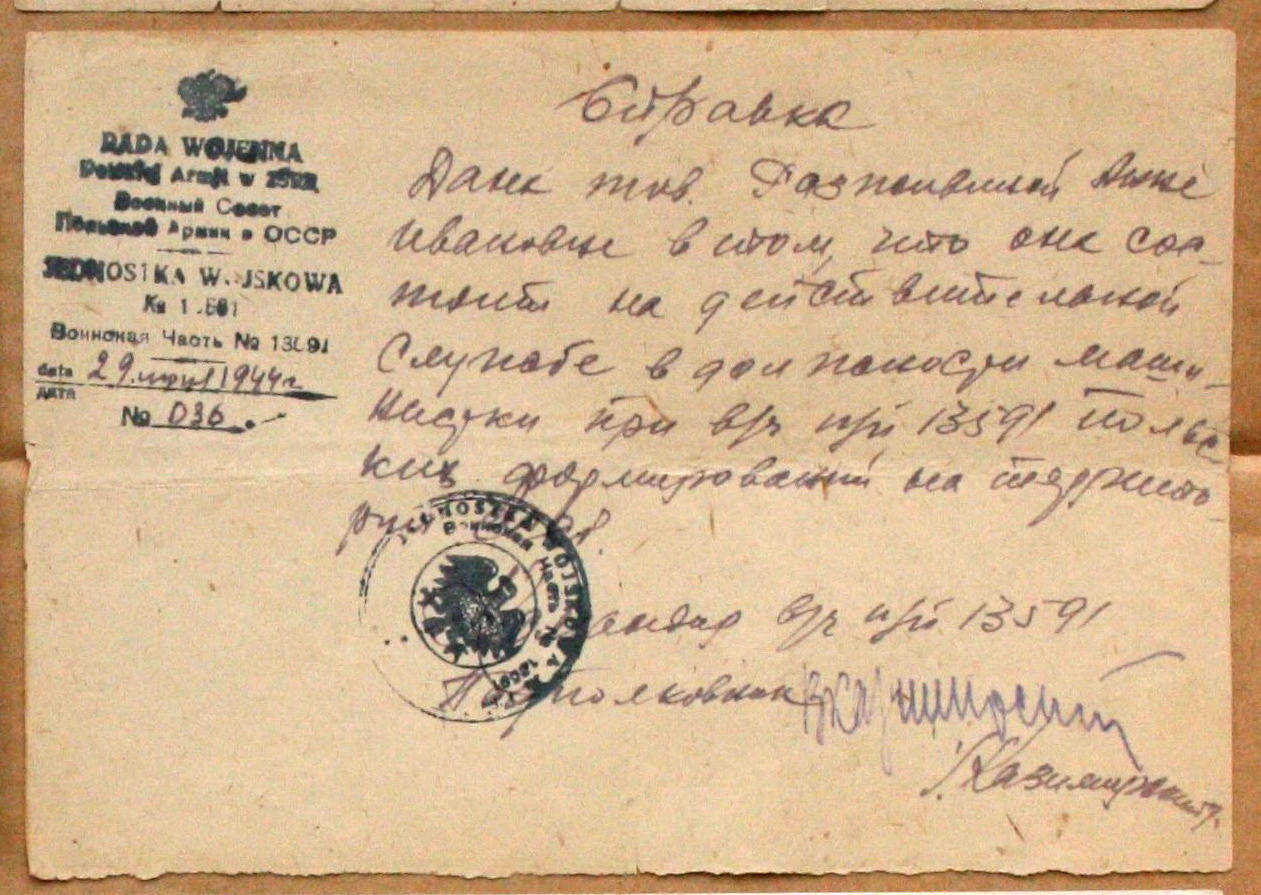 RADA WOJENNA
Polskiej Armji w ZSRR
Военный Совет
Польской Армии в СССР
JEDNOSTKA WOJSKOWA
№
Воинская Часть №
data 29 1944 г
дата
№ 036.
Справка
Дана тов. Анне
Ивановне в том, что она сос-
тоит на действительной
службе в должности маши-
нистки при в/ч п/п 13591 польс-
ких формирований на террито-
рии
JEDNOSTKA WOJSKOWA
Воинская Часть №
Командир в/ч п/п 13591
Подполковник
/Казимирский/.